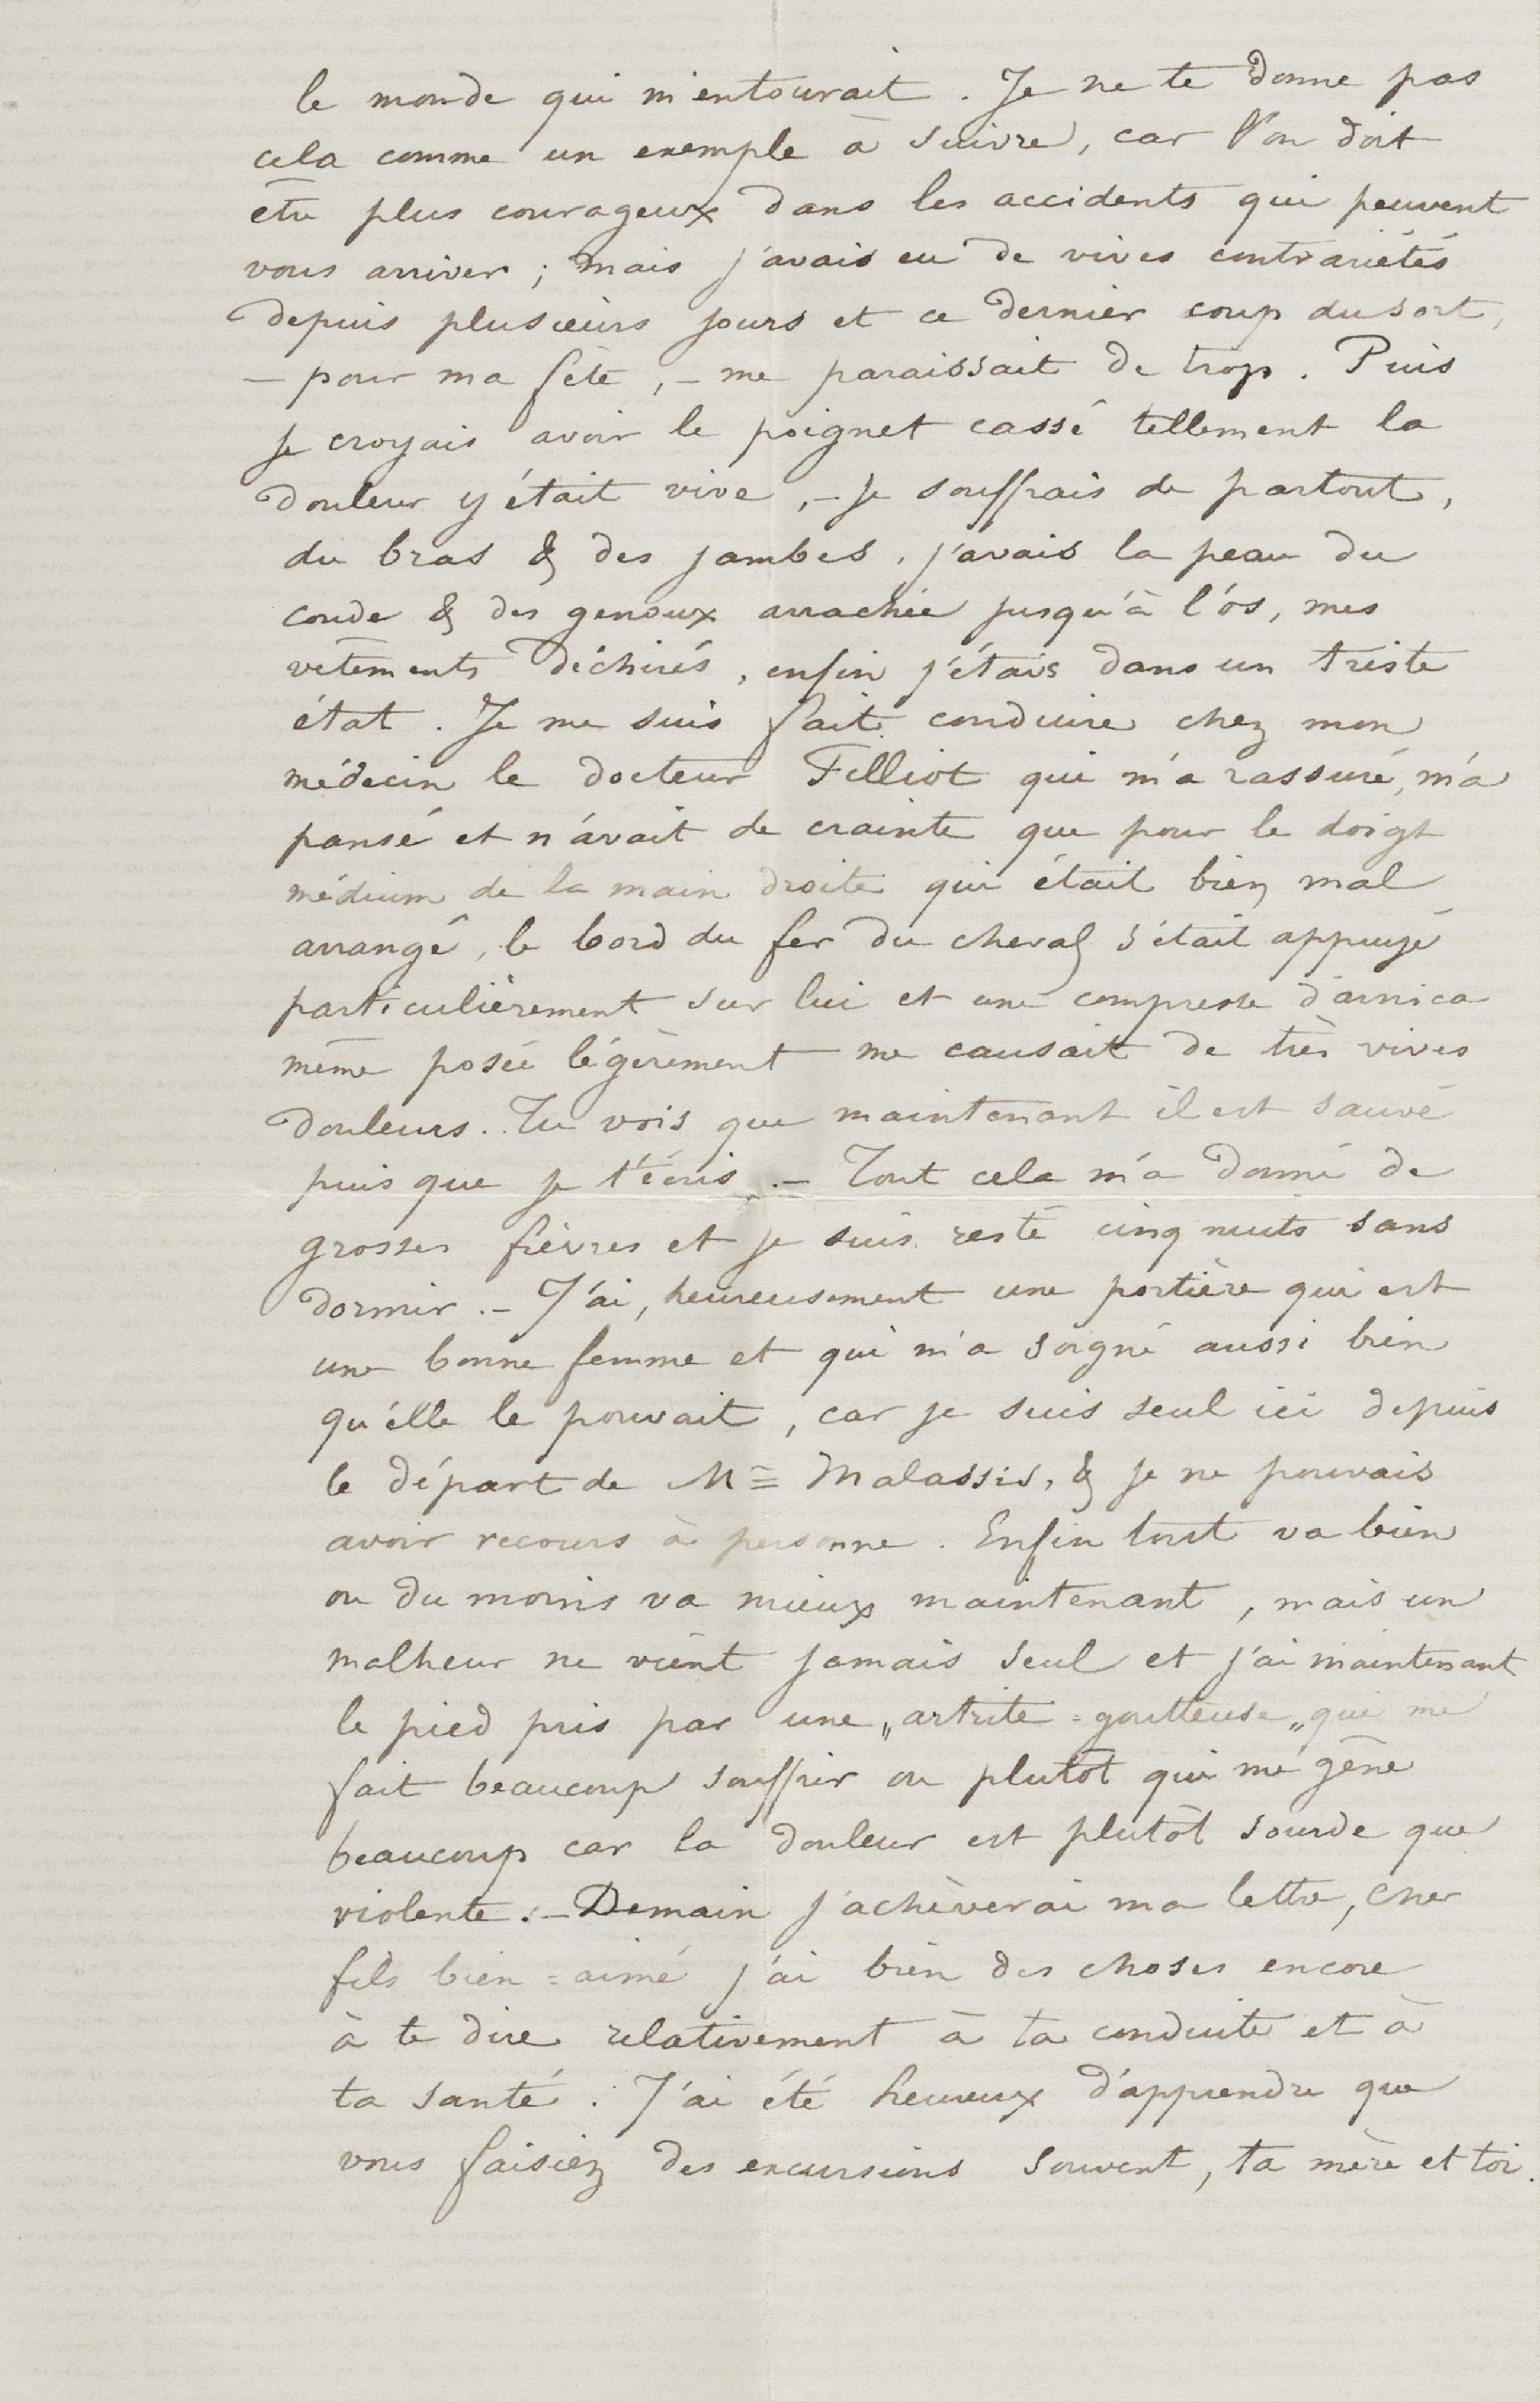 le monde qui m'entourait. Je ne te donne pas
cela comme un exemple à suivre, car l'on doit
être plus courageux dans les accidents qui peuvent
vous arriver ; mais j'avais eu de vives contrariétés
depuis plusieurs jours et ce dernier coup du sort,
— pour ma fête, — me paraissait de trop. Puis
je croyais avoir le poignet cassé tellement la
douleur y était vive, — je souffrais de partout,
du bras & des jambes. j'avais la peau du
coude & des genoux arrachée jusqu'à l'os, mes
vêtements déchirés, enfin j'étais dans un triste
état. Je me suis fait conduire chez mon
médecin le docteur Felliot qui m'a rassuré, m'a
pansé et n'avait de crainte que pour le doigt
médium de la main droite qui était bien mal
arrangé, le bord du fer du cheval s'était appuyé
particulièrement sur lui et une compresse d'arnica
même posée légèrement me causait de très vives
douleurs. Tu vois que maintenant il est sauvé
puis que je t'écris. — Tout cela m'a donné de
grosses fièvres et je suis resté cinq nuits sans
dormir. — J'ai, heureusement une portière qui est
une bonne femme et qui m'a soigné aussi bien
qu'elle le pouvait, car je suis seul ici depuis
le départ de M= Malassis, & je ne pouvais
avoir recours à personne. Enfin tout va bien
ou du moins va mieux maintenant, mais un
malheur ne vient jamais seul et j'ai maintenant
le pied pris par une „artrite = goutteuse„ qui me
fait beaucoup souffrir ou plutôt qui me gêne
beaucoup car la douleur est plutôt sourde que
violente. — Demain j'achèverai ma lettre, cher
fils bien = aimé j'ai bien des choses encore
à te dire relativement à ta conduite et à
ta santé. J'ai été heureux d'apprendre que
vous faisiez des excursions souvent, ta mère et toi.